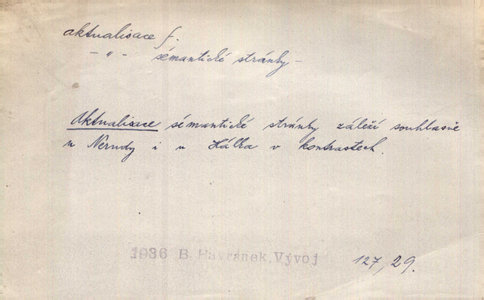 aktualisace f.
— " — sémantické stránky —
Aktualisace sémantické stránky záleží souhlasně
u Nerudy i u Hálka v kontrastech.
1936 B. Havránek, Vývoj 127, 29.